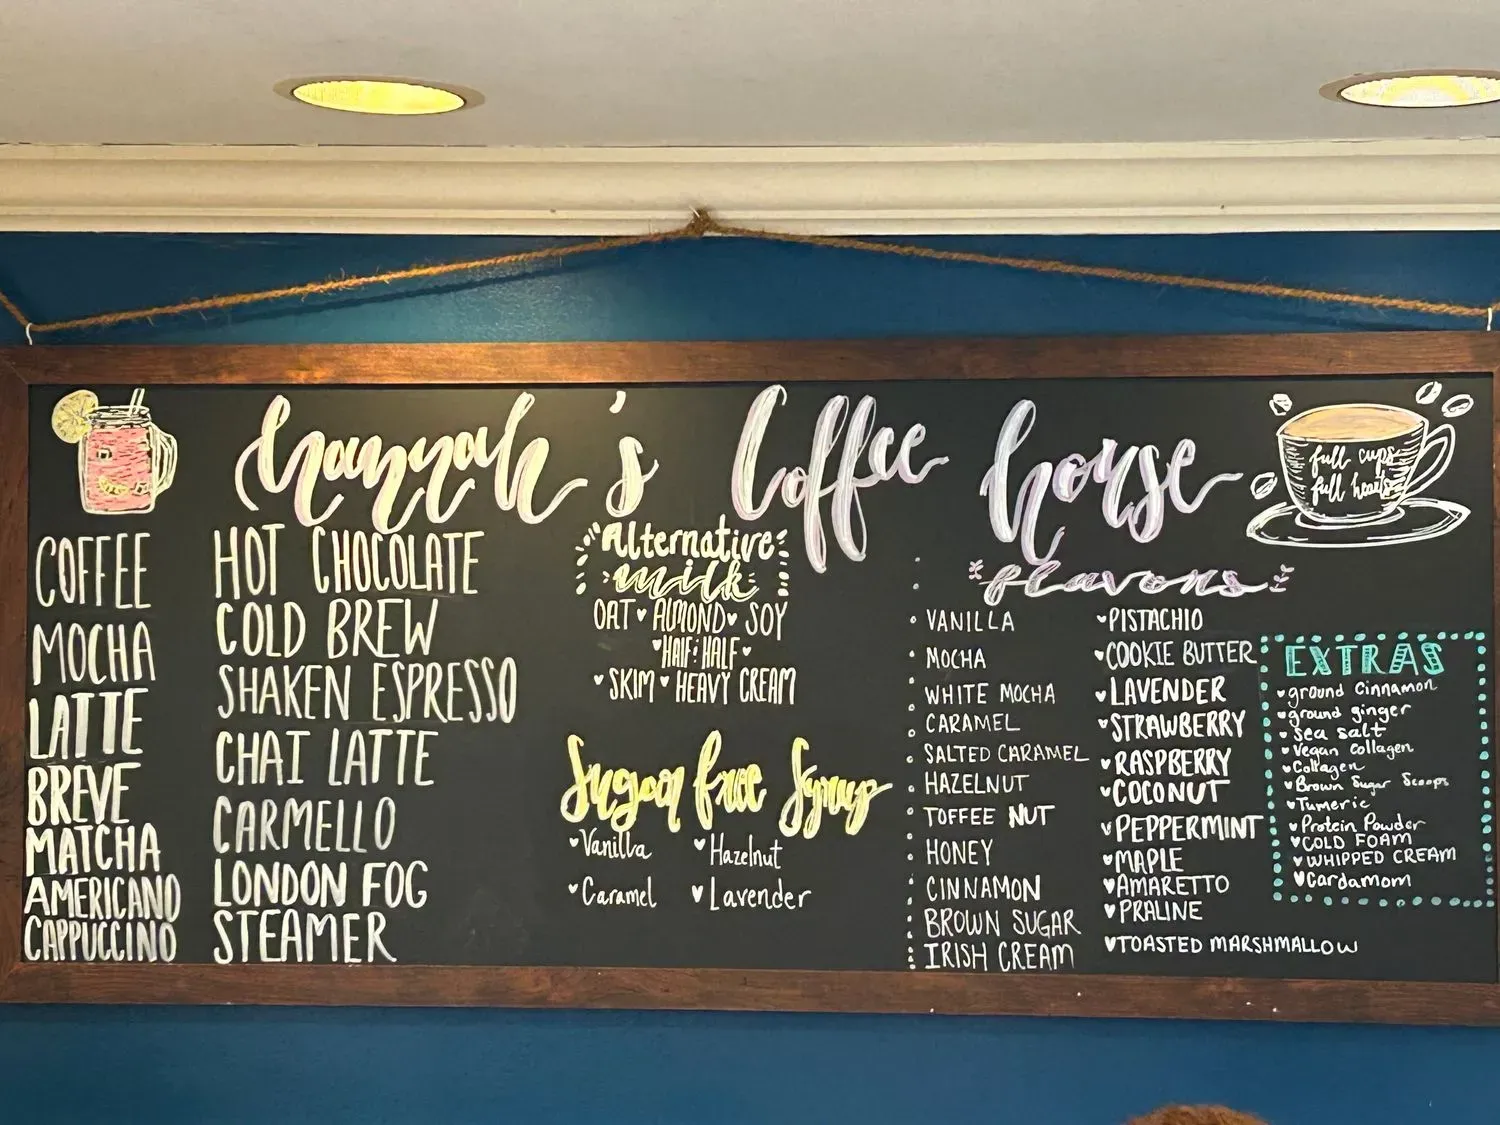 hannah's Coffee house
full cups
full hearts
COFFEE
MOCHA
LATTE
BREVE
MATCHA
AMERICANO
CAPPUCCINO
HOT CHOCOLATE
COLD BREW
SHAKEN ESPRESSO
CHAI LATTE
CARMELLO
LONDON FOG
STEAMER
Alternative
milk
OAT ♥ ALMOND ♥ SOY
♥ HALF & HALF ♥
♥ SKIM ♥ HEAVY CREAM
Sugar free Syrup
♥ Vanilla ♥ Hazelnut
♥ Caramel ♥ Lavender
flavors
VANILLA
MOCHA
WHITE MOCHA
CARAMEL
SALTED CARAMEL
HAZELNUT
TOFFEE NUT
HONEY
CINNAMON
BROWN SUGAR
IRISH CREAM
♥ PISTACHIO
♥ COOKIE BUTTER
♥ LAVENDER
♥ STRAWBERRY
♥ RASPBERRY
♥ COCONUT
♥ PEPPERMINT
♥ MAPLE
♥ AMARETTO
♥ PRALINE
♥ TOASTED MARSHMALLOW
EXTRAS
♥ ground cinnamon
♥ ground ginger
♥ sea salt
♥ Vegan Collagen
♥ Collagen
♥ Brown Sugar Scoops
♥ Tumeric
♥ Protein Powder
♥ COLD FOAM
♥ WHIPPED CREAM
♥ Cardamom